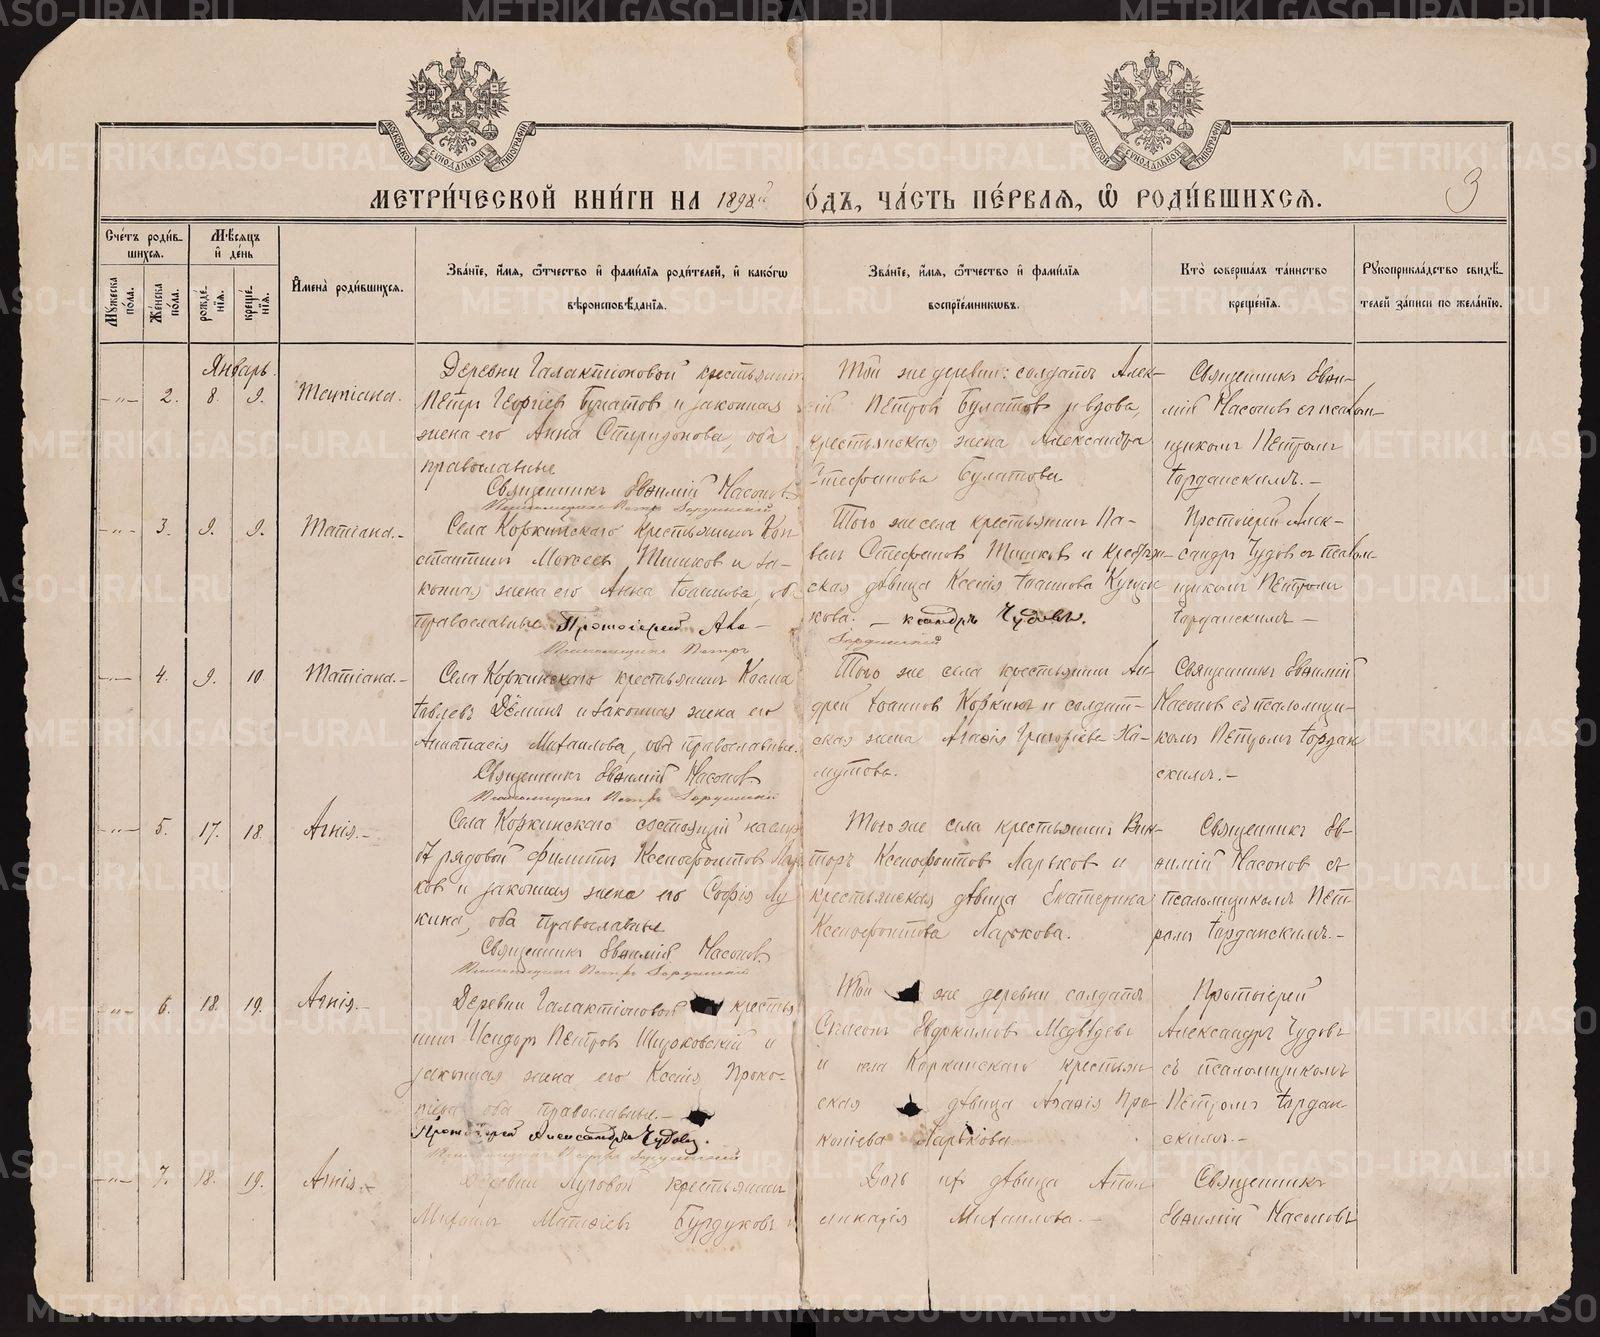 МЕТРИ́ЧЕСКОЙ КНИ́ГИ НА 1898й
О́ДЪ, ЧА́СТЬ ПЕ́РВАЯ, Ѡ҆ РОДИ́ВШИХСЯ.
3
Сче́тъ роди́в-
шихся.
Мꙋжеска по́ла.
Же́нска по́ла.
Мѣ́сяцъ
и҆ де́нь
рожде́нїя.
креще́нїя.
И҆мена̀ роди́вшихся.
Зва́нїе, и҆́мя, ѻ҆́тчество и҆ фами́лїя роди́телей, и҆ како́гѡ
вѣроисповѣ́данїя.
Зва́нїе, и҆́мя, ѻ҆́тчество и҆ фами́лїя
воспрїе́мникѡвъ.
Кто̀ соверша́лъ та́инство
креще́нїя.
Рꙋкоприкла́дство свидѣ́-
телей за́писи по жела́нїю.
Январь.
—"— 2. 8. 9.
Деревни Галактіоновой крестьянинъ
Петръ Георгіев Булатов и законная
жена его Анна Спиридонова, оба
православные
Священникъ Евѳимій Насонов.
Той же деревни: солдатъ Алек-
сій Петров Булатов и вдова,
крестьянская жена Александра
Стефанова Булатова
Священникъ Евѳи-
мій Насонов съ псалом-
щикомъ Петромъ
Іорданскимъ. —
—"— 3. 9. 9. Татіана. —
Села Коркинскаго крестьянинъ Кон-
стантинъ Моѵсеев Тишков и за-
конная жена его Анна Іоаннова, оба
православные Протоіерей Але-
Того же села крестьянинъ Па-
велъ Стефанов Тишков и крестьян-
ская дѣвица Ксенія Іоаннова
кова. — ксандръ Чудовъ.
Протоіерей Алек-
сандръ Чудов съ псалом-
щикомъ Петромъ
Іорданскимъ —
—"— 4. 9. 10 Татіана. —
Села Коркинскаго крестьянинъ Косма
Іовлевъ Дёминъ и законная жена его
Анастасія Михаилова, оба православные.
Священникъ Евѳимій Насонов
Псаломщикъ Петръ Іорданскій
Того же села крестьянинъ Ан-
дрей Іоаннов Коркинъ и солдат-
ская жена Агаѳія Григоріева Ха-
мутова.
Священникъ Евѳимій
Насонов съ псаломщи-
комъ Петромъ Іордан
скимъ. —
—"— 5. 17. 18. Агнія. —
Села Коркинскаго состоящій на служ
бѣ рядовой Филиппъ Ксенофонтов Ларь
ков и законная жена его Софія Лу
кина, оба православные
Священникъ Евѳимій Насонов.
Псаломщикъ Петръ Іорданскій
Того же села крестьянинъ Вик-
торъ Ксенофонтов Ларьков и
крестьянская дѣвица Екатерина
Ксенофонтова Ларькова.
Священникъ Ев-
ѳимій Насонов съ
псаломщикомъ Пет-
ромъ Іорданскимъ. —
—"— 6. 18. 19. Агнія. —
Деревни Галактіоновой крестья
нинъ Исидоръ Петров Широковскій и
законная жена его Ксенія Проко-
піева оба православные. —
Протоіерей Александръ Чудовъ.
Псаломщикъ Петръ Іорданскій
Той же деревни солдатъ
Симеонъ Евдокимовъ Медвѣдевъ
и села Коркинскаго крестьян
ская дѣвица Агаѳія Про-
копіева Ларькова
Протоіерей
Александръ Чудовъ
съ псаломщикомъ
Петромъ Іордан
скимъ. —
—"— 7. 18. 19. Агнія. —
Деревни Луговой крестьянинъ
Михаилъ Матѳіевъ Бурдуковъ и
Дочь их дѣвица Апол
линарія Михаилова. —
Священникъ
Евѳимій Насоновъ
METRIKI.GASO-URAL.RU